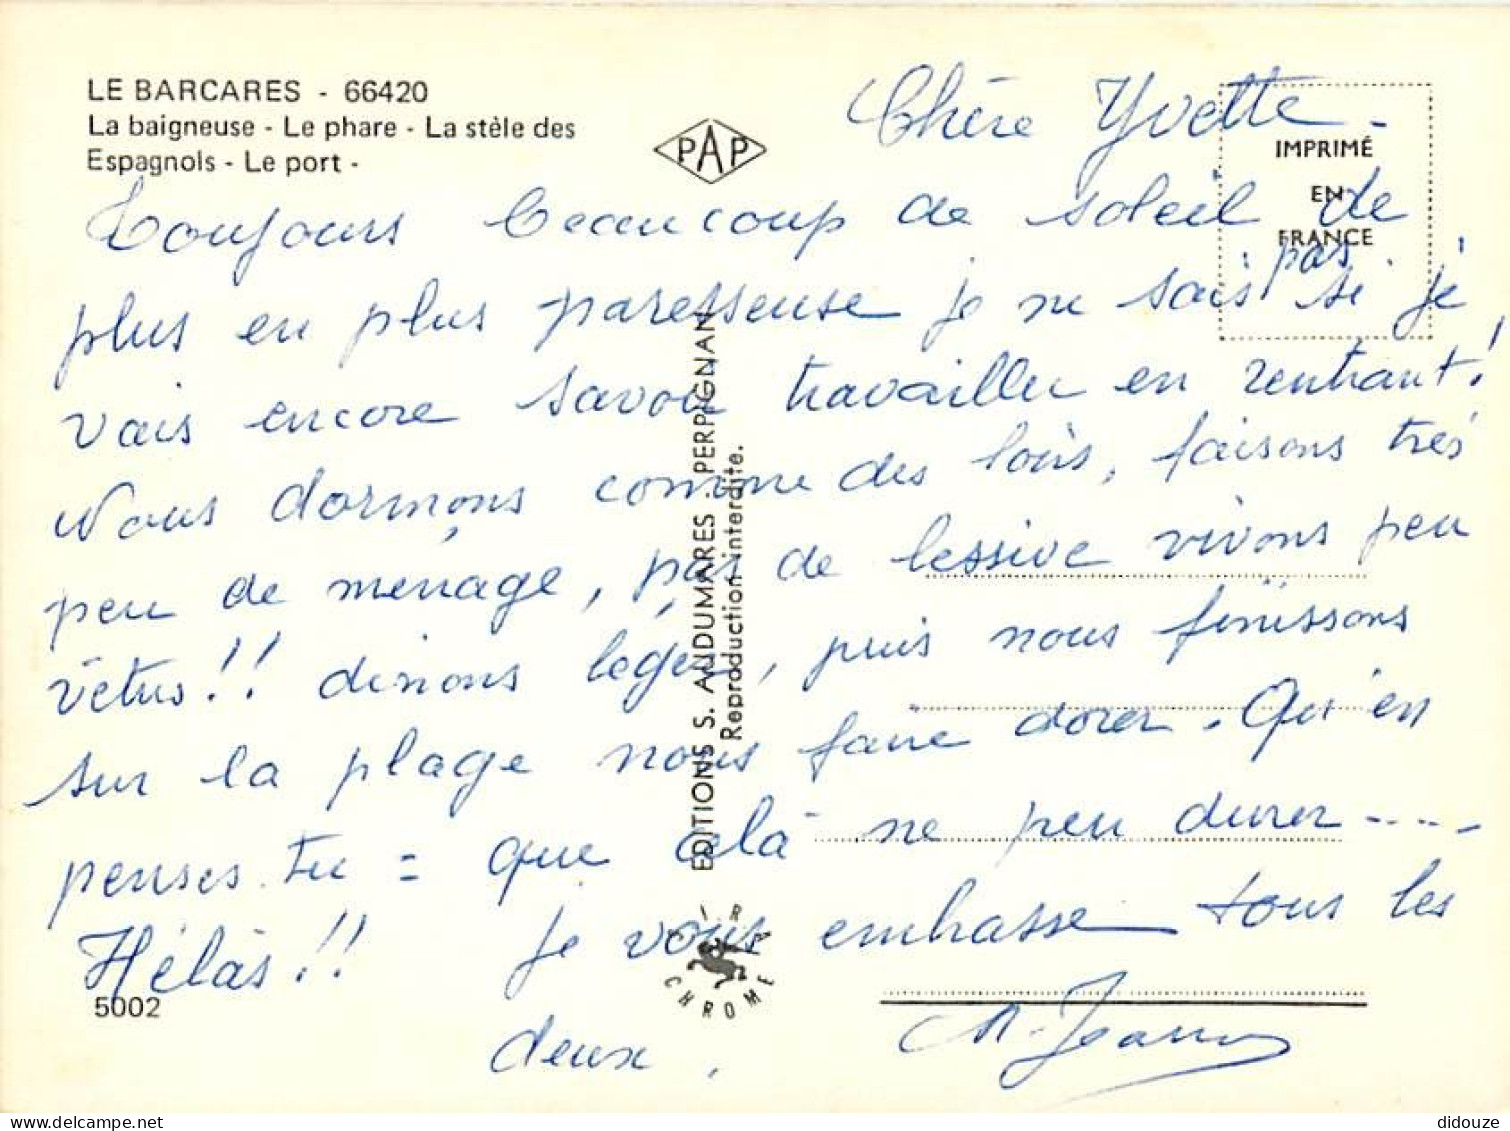 LE BARCARES - 66420
La baigneuse - Le phare - La stèle des
Espagnols - Le port -
PAP
IMPRIMÉ
EN
FRANCE
Chère Yvette -
Toujours beaucoup de soleil de
plus en plus paresseuse je ne sais pas si je
vais encore savoir travailler en rentrant!
Nous dormons comme des loirs, faisons très
peu de ménage, pas de lessive vivons peu
vêtus!! dinons léger, puis nous finissons
sur la plage nous faire dorer. Qu'en
penses tu = que celà ne peu durer ----
Hélàs!! Je vous embrasse tous les
deux.
M. Jeanne
EDITIONS S. AUDUMARES - PERPIGNAN
Reproduction interdite.
CIR
CHROME
5002
didouze